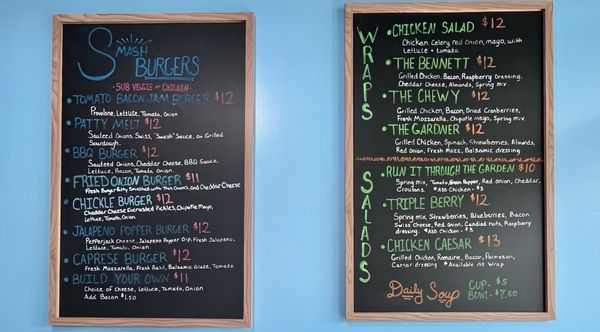 SMASH
BURGERS
SUB VEGGIE or CHICKEN
TOMATO BACON JAM BURGER $12
Provolone, Lettuce, Tomato, Onion
PATTY MELT $12
Sauteed Onions, Swiss, "Smash" Sauce, on Grilled
Sourdough.
BBQ BURGER $12
Sauteed Onions, Cheddar Cheese, BBQ Sauce
Lettuce, Bacon, Tomato, Onion.
FRIED ONION BURGER $11
Fresh Burger Patty Smashed with thin Onions, and Cheddar Cheese
CHICKLE BURGER $12
Cheddar Cheese Encrusted Pickles, Chipotle Mayo,
Lettuce, Tomato, Onion
JALAPENO POPPER BURGER $12
Pepperjack Cheese, Jalapeno Popper Dip, Fresh Jalapeno,
Lettuce, Tomato, Onion.
CAPRESE BURGER $12
Fresh Mozzarella, Fresh Basil, Balsamic Glaze, Tomato
BUILD YOUR OWN $11
Choice of Cheese, Lettuce, Tomato, Onion
Add Bacon $1.50
WRAPS
CHICKEN SALAD $12
Chicken, Celery, red onion, mayo, with
Lettuce + tomato.
THE BENNETT $12
Grilled Chicken, Bacon, Raspberry Dressing,
Cheddar Cheese, Almonds, Spring mix
THE CHEWY $12
Grilled Chicken, Bacon, Dried Cranberries,
Fresh Mozzarella, Chipotle mayo, Spring mix,
THE GARDNER $12
Grilled Chicken, Spinach, Strawberries, Almonds,
Red Onion, Fresh Mozz, Balsamic dressing
SALADS
RUN IT THROUGH THE GARDEN $10
Spring mix, Tomato, Green Pepper, Red Onion, Cheddar,
Croutons. *Add Chicken - $3
TRIPLE BERRY $12
Spring mix, Strawberries, Blueberries, Bacon
Swiss Cheese, Red Onion, Candied nuts, Raspberry
dressing. *Add Chicken - $3
CHICKEN CAESAR $13
Grilled Chicken, Romaine, Bacon, Parmesan,
Caesar dressing *Available as Wrap
Daily Soup
CUP- $5
BOWL- $7.50